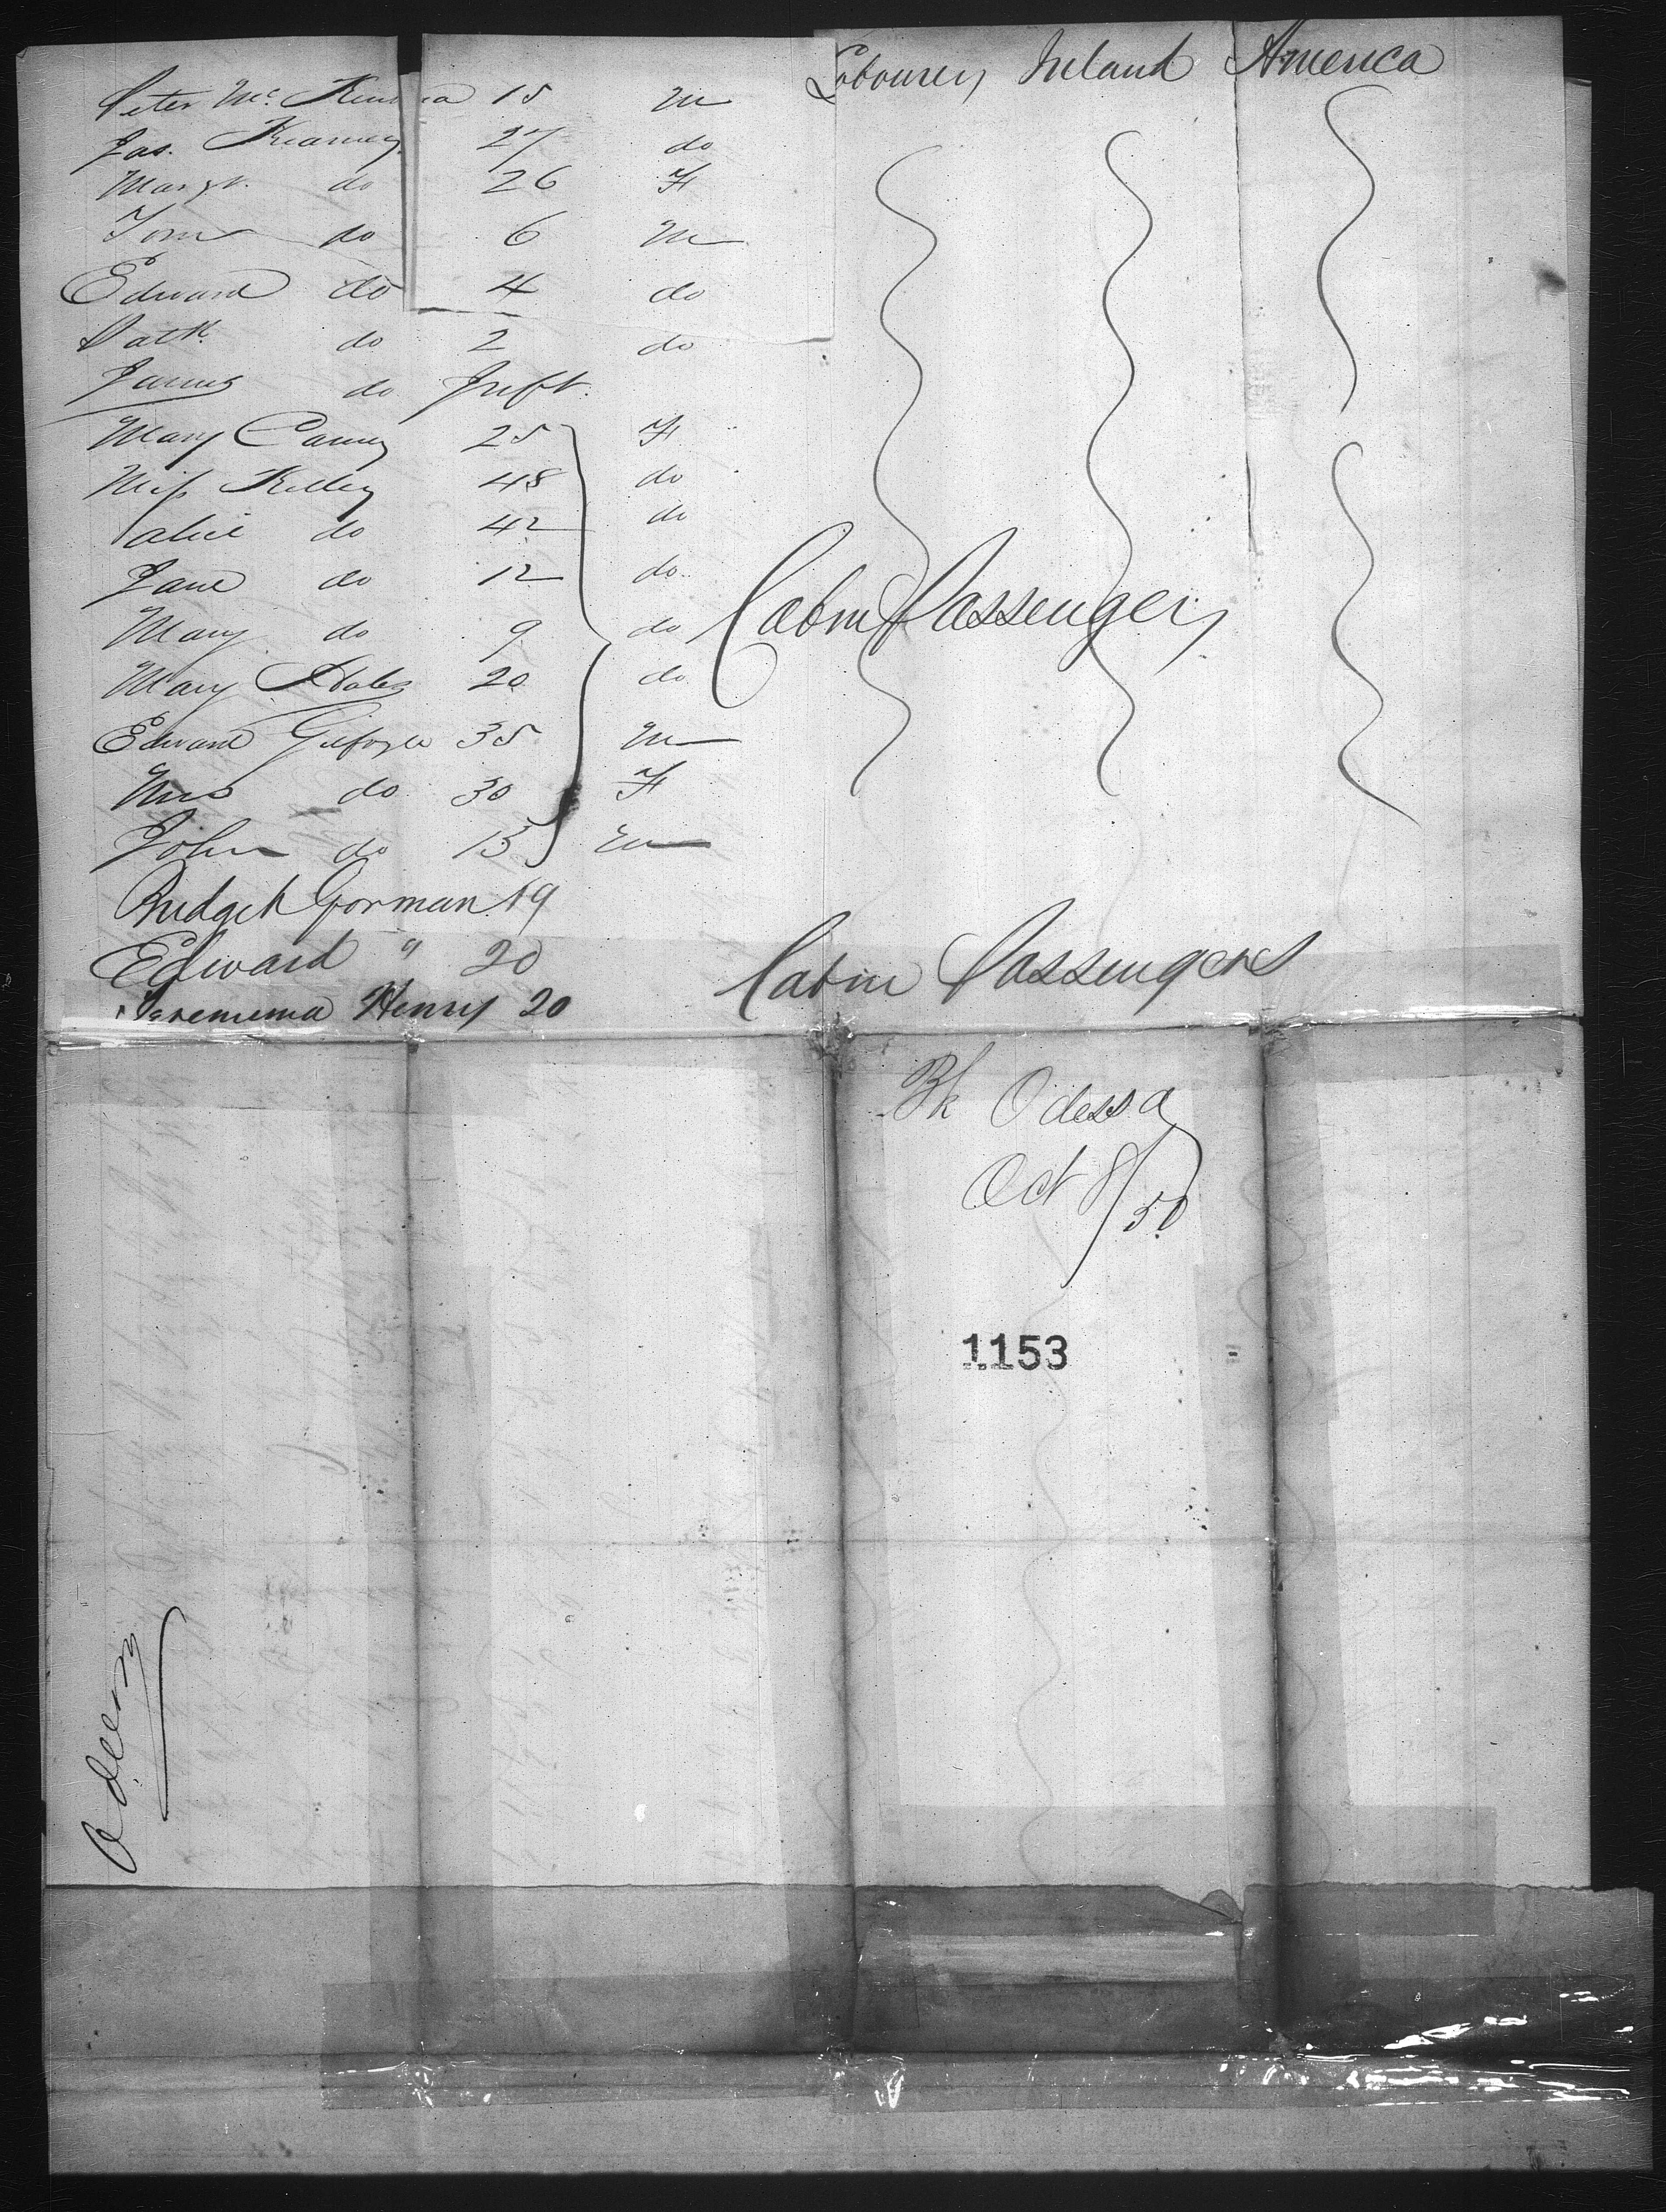 Peter Mc Kenna 15 M Labourers Ireland America
Jas. Kearney 27 do
Margt. do 26 F
Tom do 6 M
Edward do 4 do
Patk. do 2 do
James do Inft.
Mary Carney 25 F
Miss Kelley 48 do
Alice do 42 do
Jane do 12 do
Mary do 9 do Cabin Passengers
Mary 20 do
Edward Gilfoyle 35 M
Mrs do 30 F
John do 15 M
Bridget Gorman 19
Edward " 20 Cabin Passengers
Henry 20
Bk Odessa
Oct 8/50
1153